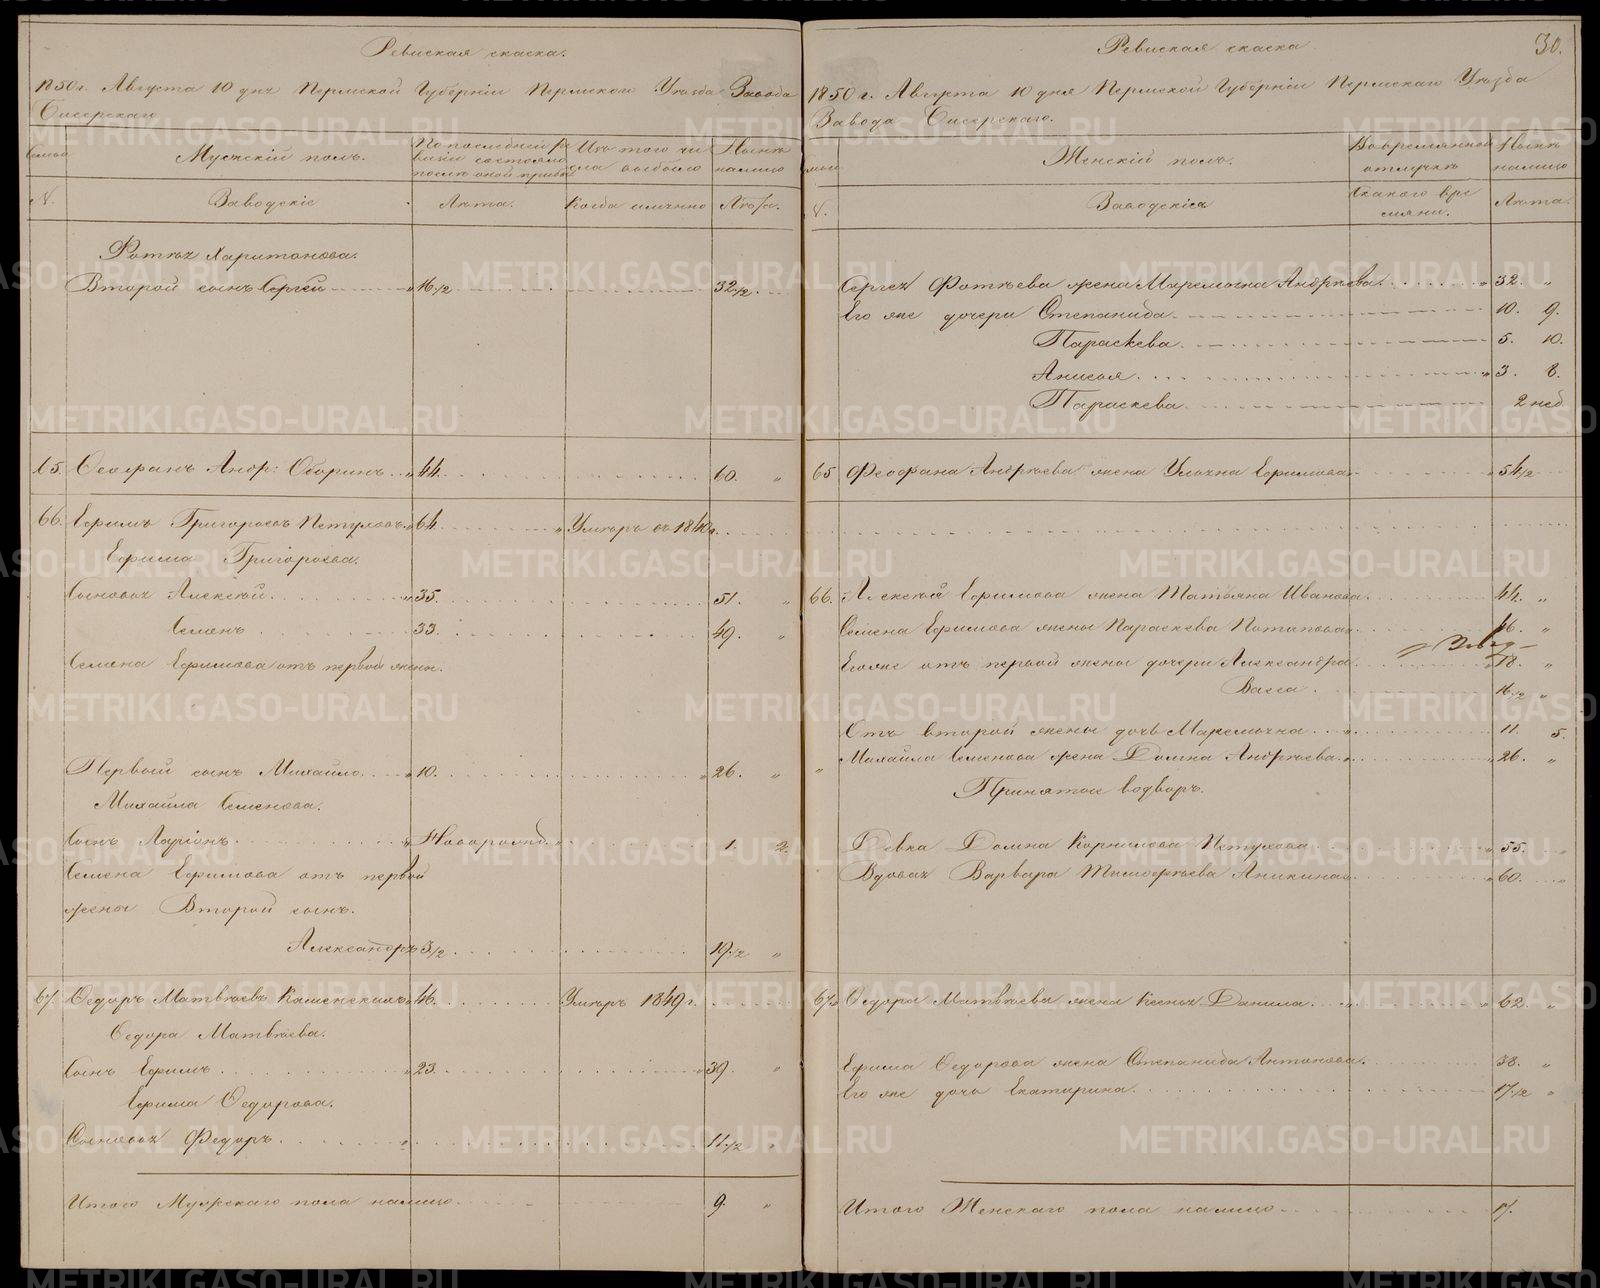 Ревиская скаска.
1850 г. Августа 10 дня Пермской Губерніи Пермского Уезда Завода
Сисерскаго
Мужскій полъ.
По последней ре
визіи состояло
Изъ того чи
сла выбыло
Ныне
налицо
N.
Заводскіе
Лѣта.
Когда имянно
Лѣта.
Фотѣя Харитонова.
Второй сынъ Сергей 16 1/2 32 1/2
65. Феофанъ Андр: Оборинъ 44. 60. "
66. Ефимъ Григорьевъ Петуховъ 64. Умеръ въ 1840 г.
Ефима Григорьева.
Сыновья Алексѣй 35. 51. "
Семенъ 33. 49. "
Семена Ефимова отъ первой жены.
Первый сынъ Михайло 10. 26. "
Михайла Семенова.
Сынъ Ларіонъ Новорожд. 1. 2.
Семена Ефимова отъ первой
жены Второй сынъ.
Александръ 3 1/2 19 1/2 "
67. Федоръ Матвѣевъ Каменскихъ 46. Умеръ 1849 г.
Федора Матвѣева.
Сынъ Ефимъ 23. 39. "
Ефима Федорова.
Сыновья Федоръ 11 1/2 "
Итого Мужскаго пола налицо 9. "
30.
Ревиская скаска
1850 г. Августа 10 дня Пермской Губерніи Пермскаго Уезда
Завода Сисерскаго.
Женскій полъ.
Во временной
отлучкѣ
Ныне
налицо
N.
Заводскіе
Съ какого вре
мяни.
Лѣта.
Сергея Фотѣева жена Маремьяна Андреева 32. "
Его же дочери Степанида 10. 9.
Параскева 5. 10.
Анисья 3. 8.
Параскева 2 нед
65 Феофана Андрѣева жена Ульяна Ефимова 54 1/2
66. Алексѣя Ефимова жена Татьяна Иванова 44. "
Семена Ефимова жены Параскева Потапова 46. "
Его же отъ первой жены дочери Александра 18. "
Васса 16 1/2 "
Отъ второй жены дочь Маремьяна 11. 5.
" Михайла Семенова жена Домна Андрѣева 26. "
Принятые водворъ.
Девка Домна Корнилова Петухова 55.
Вдова Варвара Тимофеева Аникина 60. "
67 Федора Матвѣева жена Ксенья Данила 62. "
Ефима Федорова жена Степанида Антонова 38. "
Его же дочь Екатерина 17 1/2 "
Итого Женскаго пола налицо 17.
METRIKI.GASO-URAL.RU